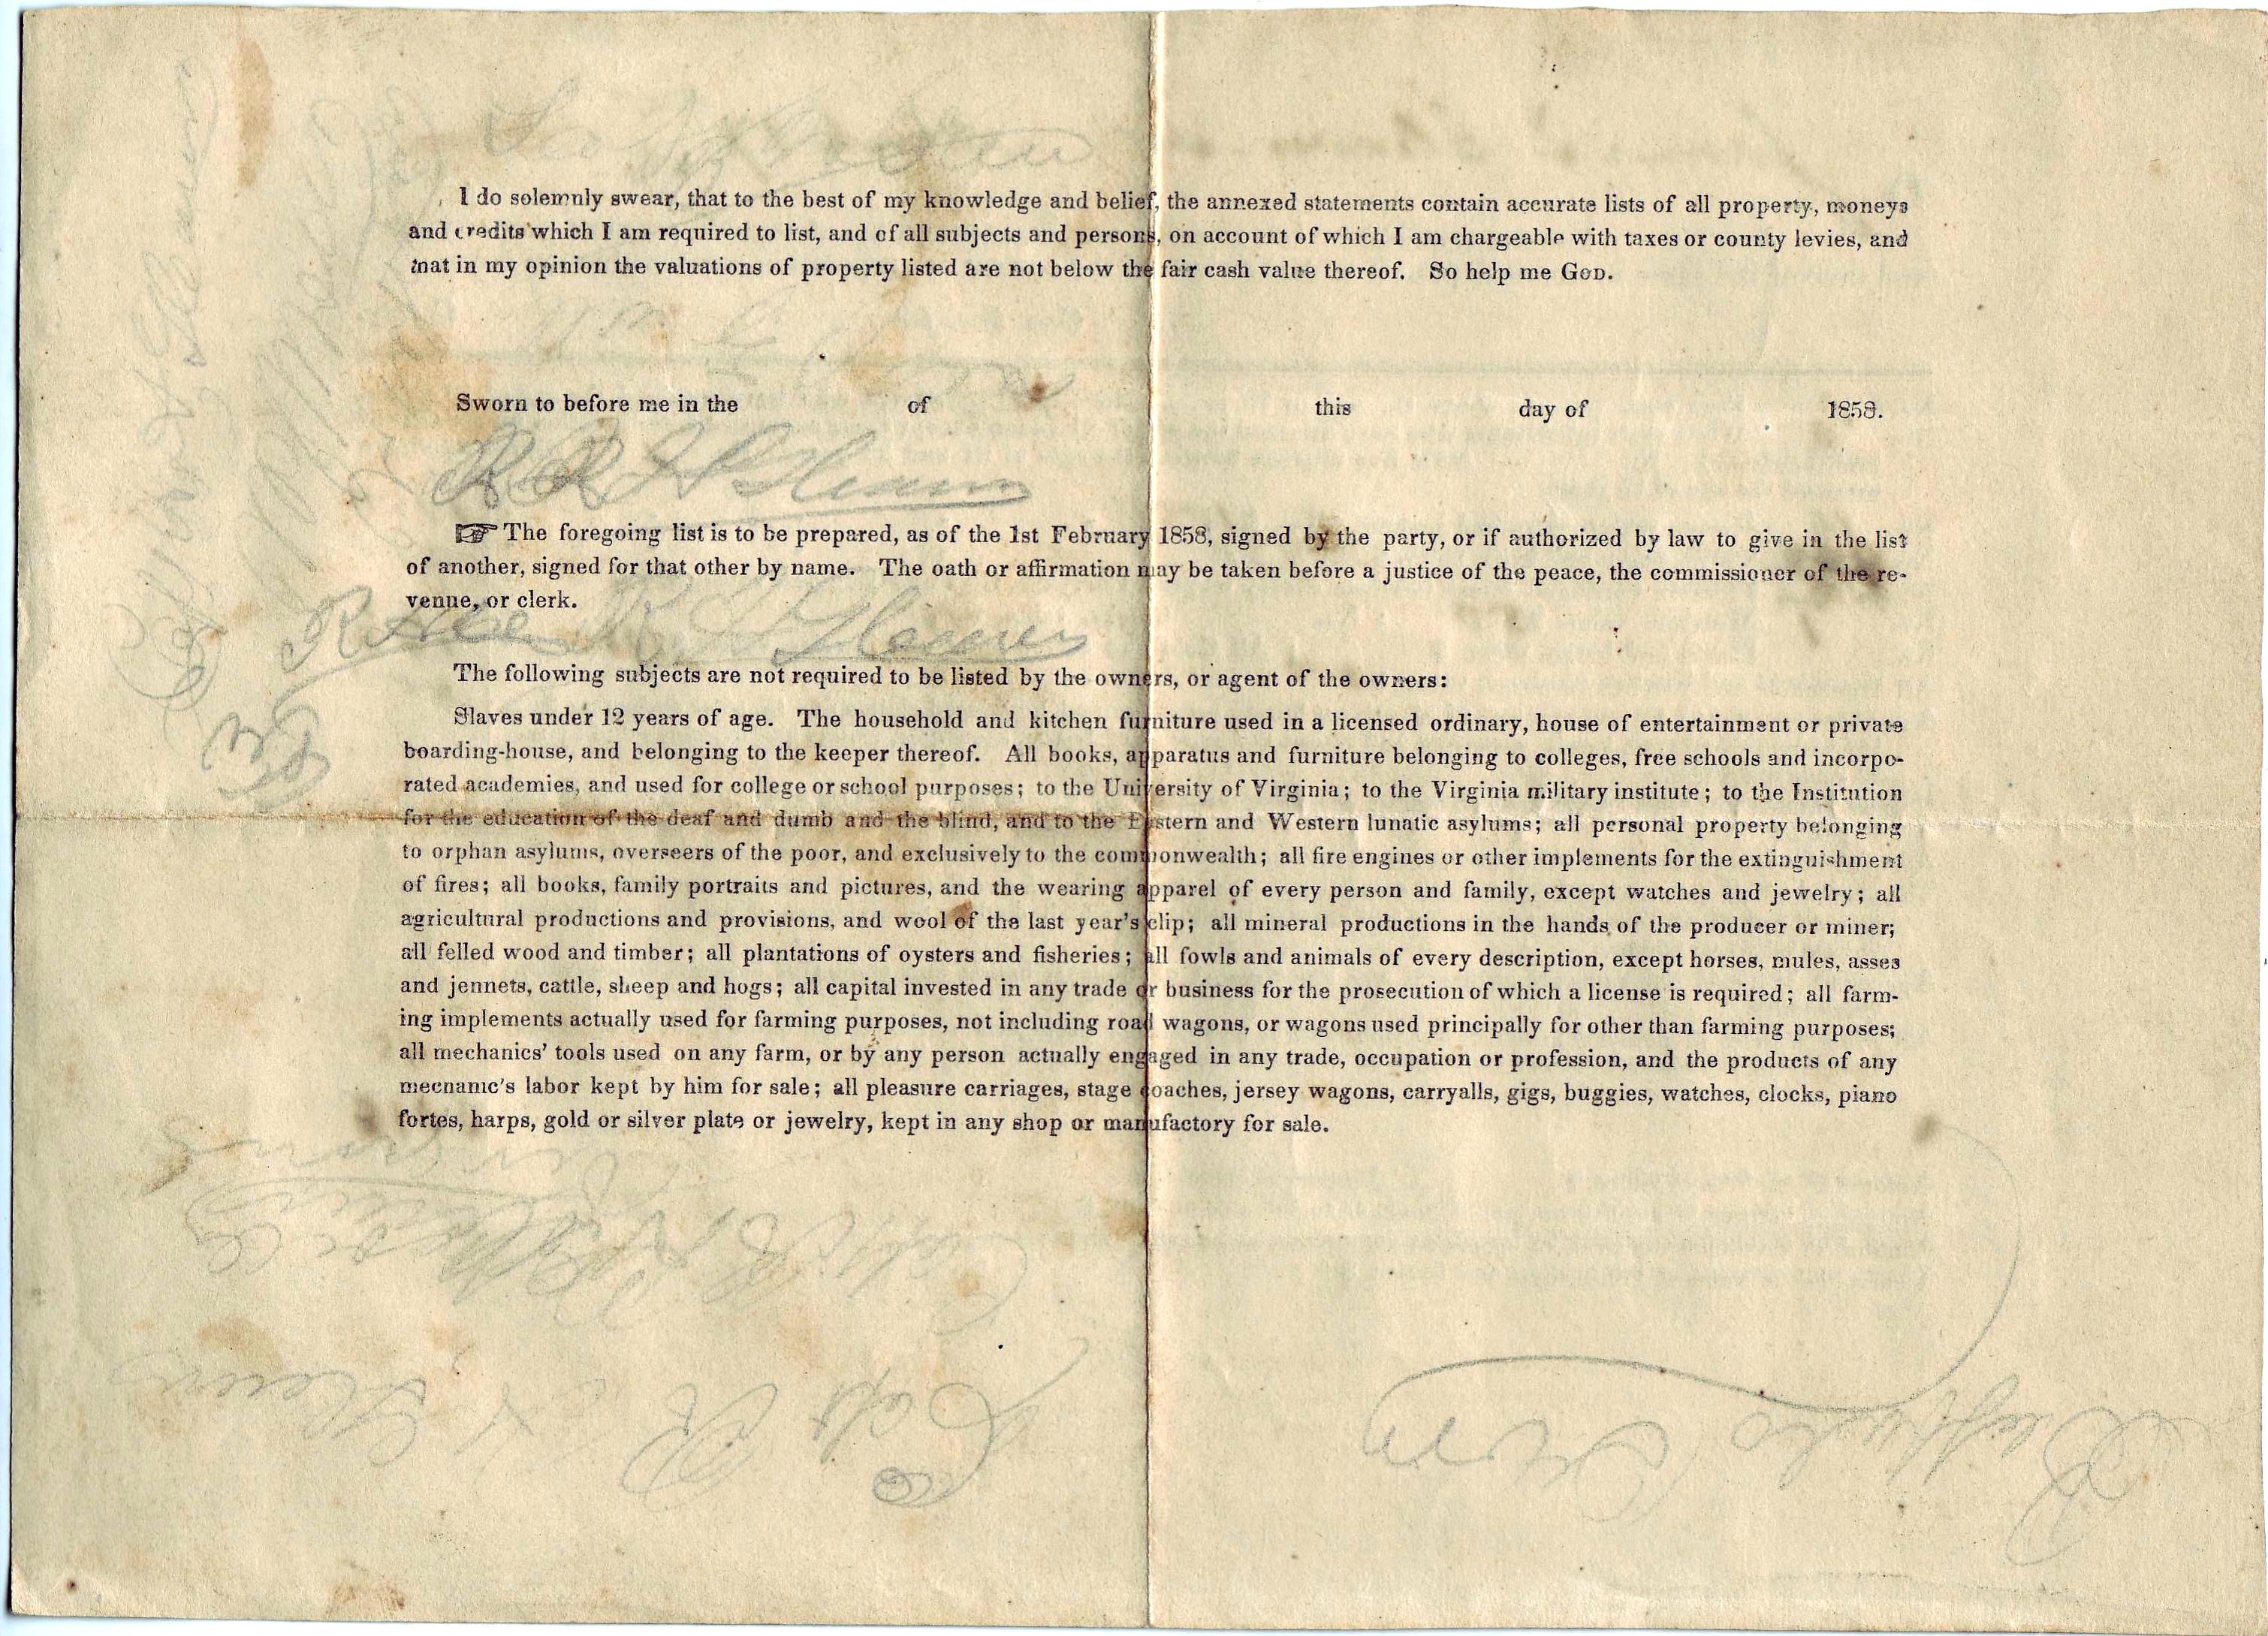 I do solemnly swear, that to the best of my knowledge and belief, the annexed statements contain accurate lists of all property, moneys
and credits which I am required to list, and of all subjects and persons, on account of which I am chargeable with taxes or county levies, and
that in my opinion the valuations of property listed are not below the fair cash value thereof. So help me GOD.
Sworn to before me in the of this day of 1858.
☞ The foregoing list is to be prepared, as of the 1st February 1858, signed by the party, or if authorized by law to give in the list
of another, signed for that other by name. The oath or affirmation may be taken before a justice of the peace, the commissioner of the re-
venue, or clerk.
The following subjects are not required to be listed by the owners, or agent of the owners:
Slaves under 12 years of age. The household and kitchen furniture used in a licensed ordinary, house of entertainment or private
boarding-house, and belonging to the keeper thereof. All books, apparatus and furniture belonging to colleges, free schools and incorpo-
rated academies, and used for college or school purposes; to the University of Virginia; to the Virginia military institute; to the Institution
for the education of the deaf and dumb and the blind, and to the Eastern and Western lunatic asylums; all personal property belonging
to orphan asylums, overseers of the poor, and exclusively to the commonwealth; all fire engines or other implements for the extinguishment
of fires; all books, family portraits and pictures, and the wearing apparel of every person and family, except watches and jewelry; all
agricultural productions and provisions, and wool of the last year's clip; all mineral productions in the hands of the producer or miner;
all felled wood and timber; all plantations of oysters and fisheries; all fowls and animals of every description, except horses, mules, asses
and jennets, cattle, sheep and hogs; all capital invested in any trade or business for the prosecution of which a license is required; all farm-
ing implements actually used for farming purposes, not including road wagons, or wagons used principally for other than farming purposes;
all mechanics' tools used on any farm, or by any person actually engaged in any trade, occupation or profession, and the products of any
mechanic's labor kept by him for sale; all pleasure carriages, stage coaches, jersey wagons, carryalls, gigs, buggies, watches, clocks, piano
fortes, harps, gold or silver plate or jewelry, kept in any shop or manufactory for sale.